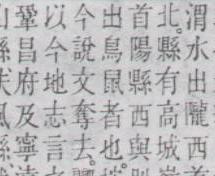 渭水出隴西
北縣有高城
首陽縣西與
出鳥鼠者也
今說文奪去
以今地志言
鞏昌府及寧
山